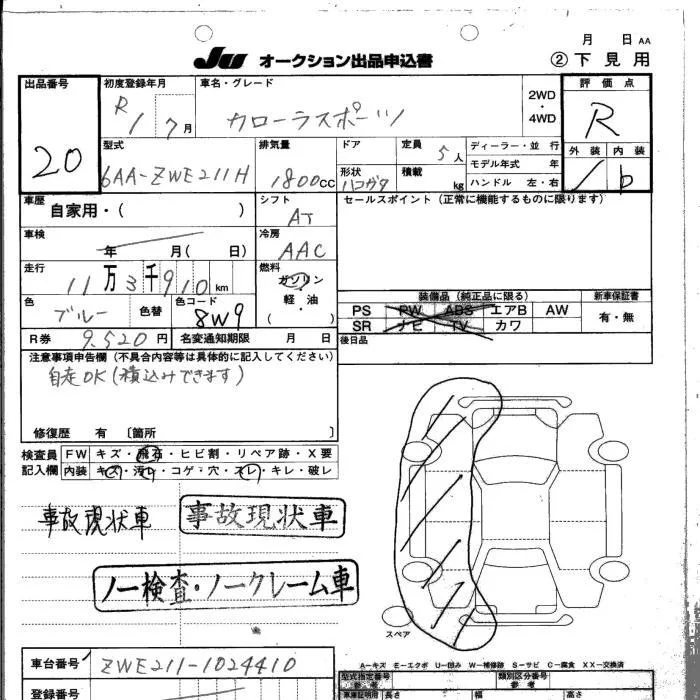 JU オークション出品申込書
月 日 AA
② 下見用
出品番号 20
初度登録年月 R 1 7月
車名・グレード カローラスポーツ
2WD・4WD
評価点 R
外装 内装 D
型式 6AA-ZWE211H
排気量 1800cc
ドア
形状 ハコガタ
定員 5人
積載 kg
ディーラー・並行
モデル年式 年
ハンドル 左・右
車歴 自家用・( )
シフト AT
セールスポイント(正常に機能するものに限ります)
車検 年 月( 日)
冷房 AAC
走行 11万3千910km
燃料 ガソリン・軽油・( )
色 ブルー
色替
色コード 8W9
装備品(純正品に限る)
新車保証書
PS PW ABS エアB AW
SR ナビ TV カワ
有・無
R券 9,520円
名変通知期限 月 日
後日品
注意事項申告欄(不具合内容等は具体的に記入してください)
自走OK(積込みできます)
修復歴 有 〔箇所 〕
検査員記入欄
FW キズ・飛石・ヒビ割・リペア跡・X要
内装 キズ・汚レ・コゲ・穴・スレ・キレ・破レ
事故現状車 事故現状車
ノー検査・ノークレーム車
スペア
車台番号 ZWE211-1024410
A-キズ E-エクボ U-凹み W-補修跡 S-サビ C-腐食 XX-交換済
登録番号
型式指定番号
類別区分番号
参考
参考
車車証明用
長さ
幅
高さ